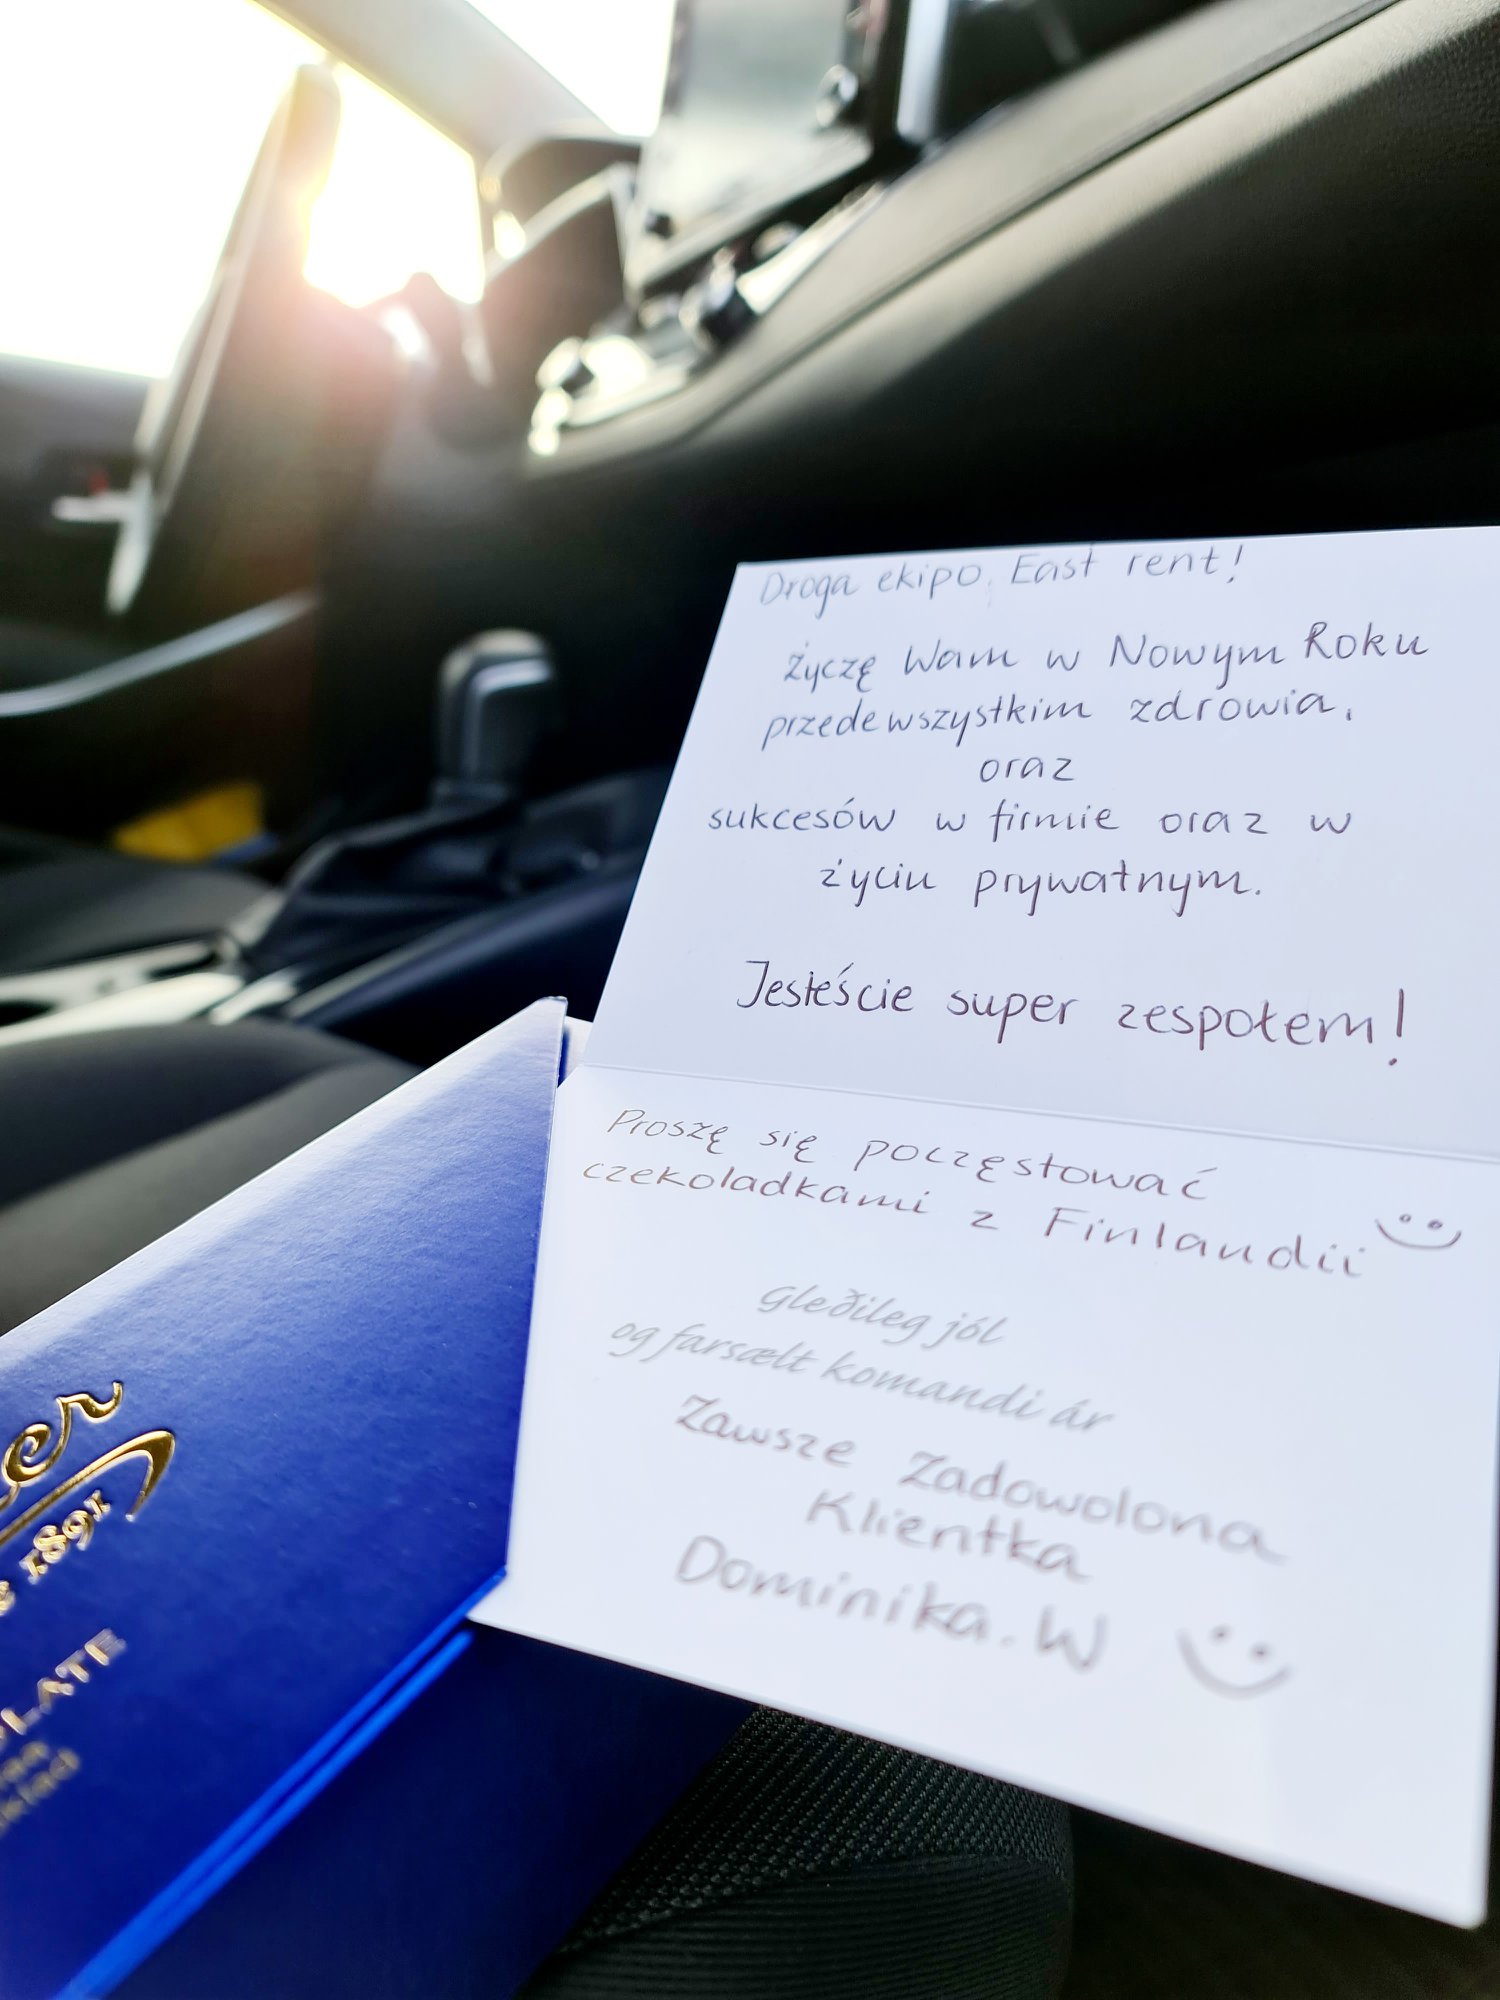 Droga ekipo East rent!
życzę Wam w Nowym Roku
przedewszystkim zdrowia,
oraz
sukcesów w firmie oraz w
życiu prywatnym.
Jesteście super zespołem!
Proszę się poczęstować
czekoladkami z Finlandii
Gleðileg jól
og farsælt komandi ár
Zawsze Zadowolona
Klientka
Dominika.W
er
1891
LATE